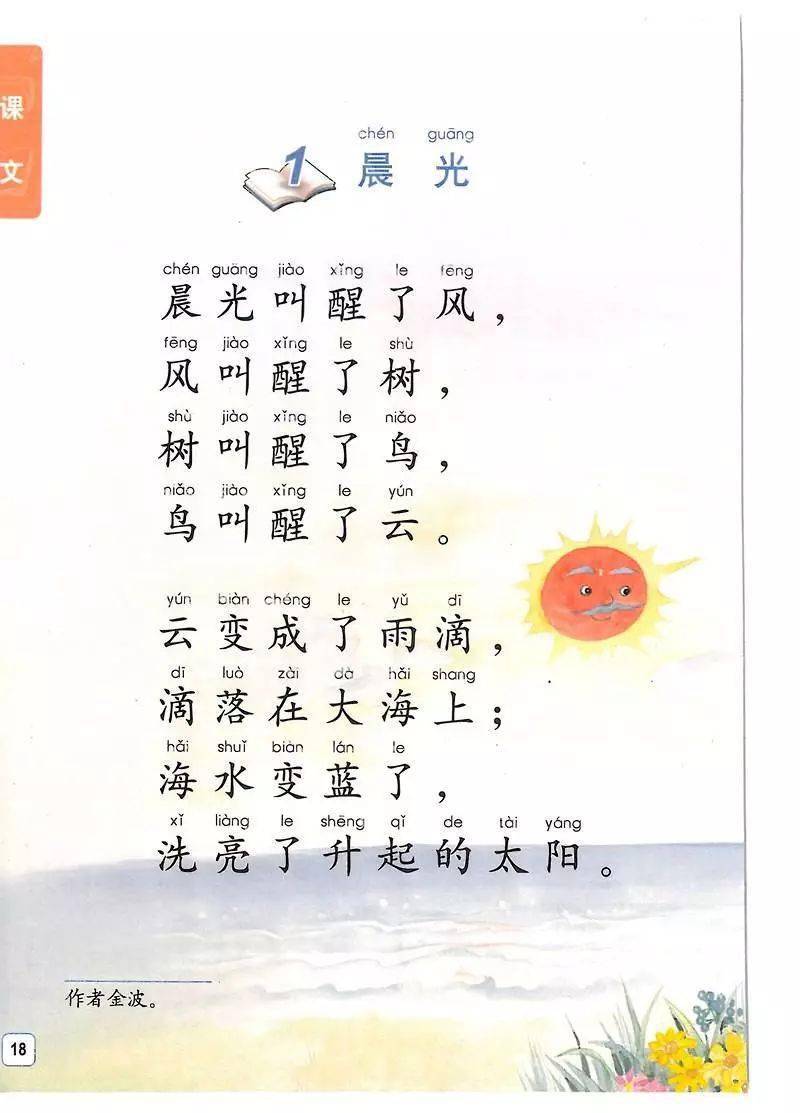 课
文
chén guāng
1 晨光
chén guāng jiào xǐng le fēng
晨光叫醒了风，
fēng jiào xǐng le shù
风叫醒了树，
shù jiào xǐng le niǎo
树叫醒了鸟，
niǎo jiào xǐng le yún
鸟叫醒了云。
yún biàn chéng le yǔ dī
云变成了雨滴，
dī luò zài dà hǎi shang
滴落在大海上；
hǎi shuǐ biàn lán le
海水变蓝了，
xǐ liàng le shēng qǐ de tài yáng
洗亮了升起的太阳。
作者金波。
18